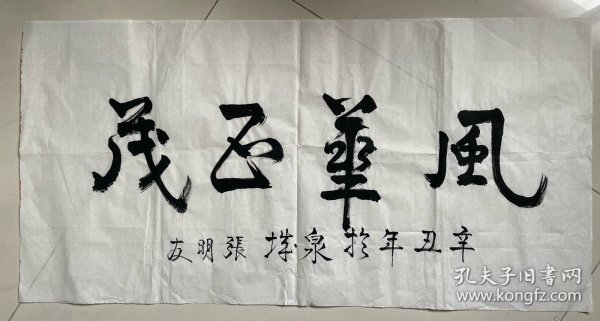 風華正茂
辛丑年於泉城張明友
孔夫子旧書网
www.kongfz.com